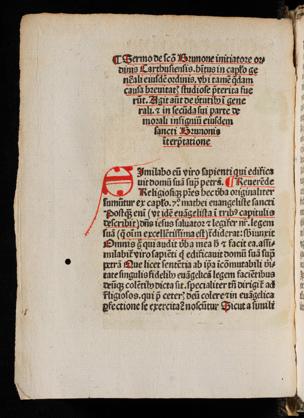 ¶ Sermo de scō Brunone initiatore or-
dinis Carthusiensis. hītus in caplo ge
nerali eiusdē ordinis. vbi tamē q̄dam
causa breuitatꝭ studiose p̄terita fue
rūt. Agit aūt de v̄tutibꝰ ī gene
rali. ⁊ in secūda sui parte de
morali insigniū eiusdem
sancti Brunonis
īterp̄tatione
Similabo eū viro sapienti qui edifica
uit domū suā sup̄ petrā. ¶ Reuerēde
Religiosiqꝫ p̄res hec v̄ba originaliter
sumūtur ex caplo. 7º. mathei euangeliste sancti
Postqꝫ em̄ (vt idē euāgelista ī tribꝰ capitulis
describit) dn̄s iesus saluator ⁊ legifer nr̄. legem
suā (q̄ oīm excellētissima est) ediderat: sbiunxit
Omnis qͥ audit v̄ba mea hº ⁊ facit ea. assi-
milabit̄ viro sapiēti qͥ edificauit domū suā sup̄
petrā Que licet sentētia ab ip̄a īcōmutabili v̄i-
tate singulis fidelibꝰ euāgelicā legem faciētibus
deūqꝫ colētibꝰ dicta sit. specialiter tn̄ dirigit̄ ad
religiosos. qui p̄ ceterꝭ deū colere ⁊ in euāgelica
p̄fectione se exercitaꝛe noscūtur Sicut a simili